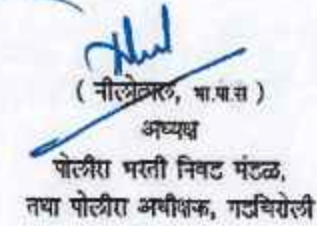 ( नीलोत्पल, भा.पो.से )
अध्यक्ष
पोलीस भरती निवड मंडळ,
तथा पोलीस अधीक्षक, गडचिरोली